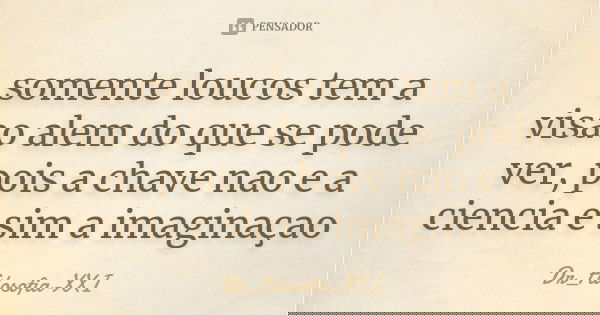 PENSADOR
somente loucos tem a
visao alem do que se pode
ver, pois a chave nao e a
ciencia e sim a imaginaçao
Dr_filosofia XXI